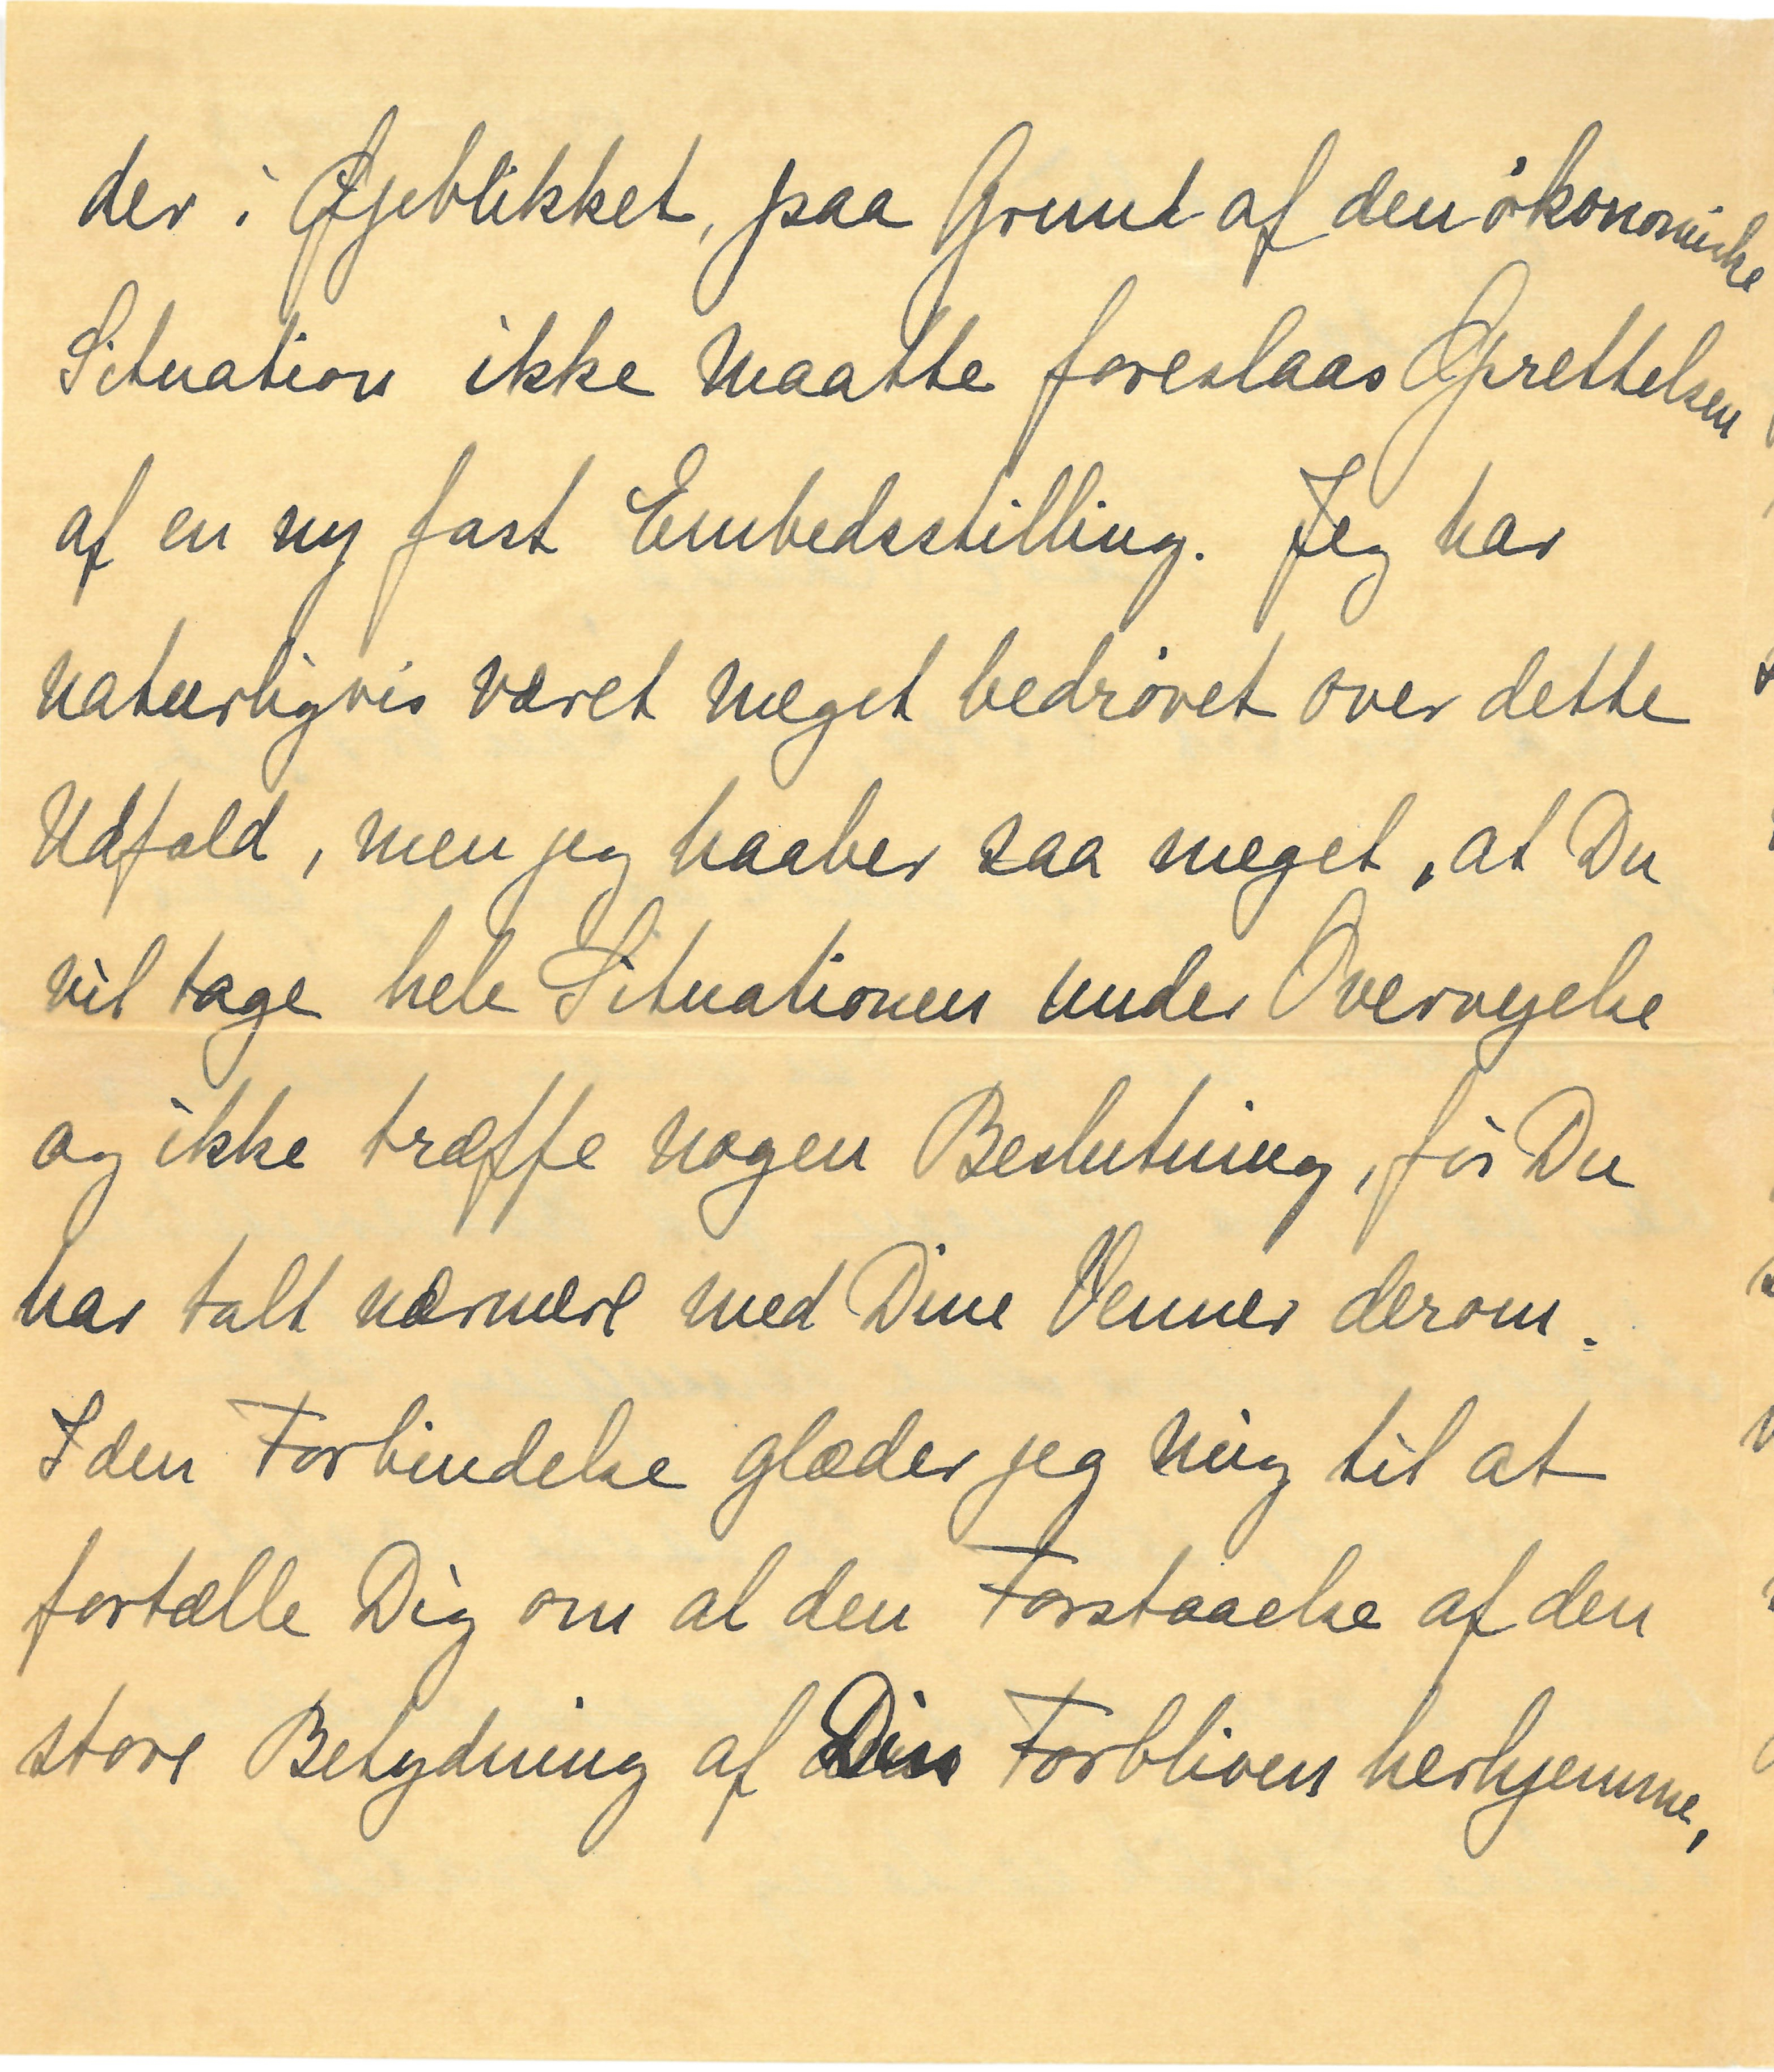 der i Øjeblikket, paa Grund af den økonomiske
Situation ikke maatte foreslaas Oprettelsen
af en ny fast Embedsstilling. Jeg har
naturligvis været meget bedrøvet over dette
Udfald, men jeg haaber saa meget, at Du
vil tage hele Situationen under Overvejelse
og ikke træffe nogen Beslutning, før Du
har talt nærmere med Dine Venner derom.
I den Forbindelse glæder jeg mig til at
fortælle Dig om al den Forstaaelse af den
store Betydning af Din Forbliven herhjemme,